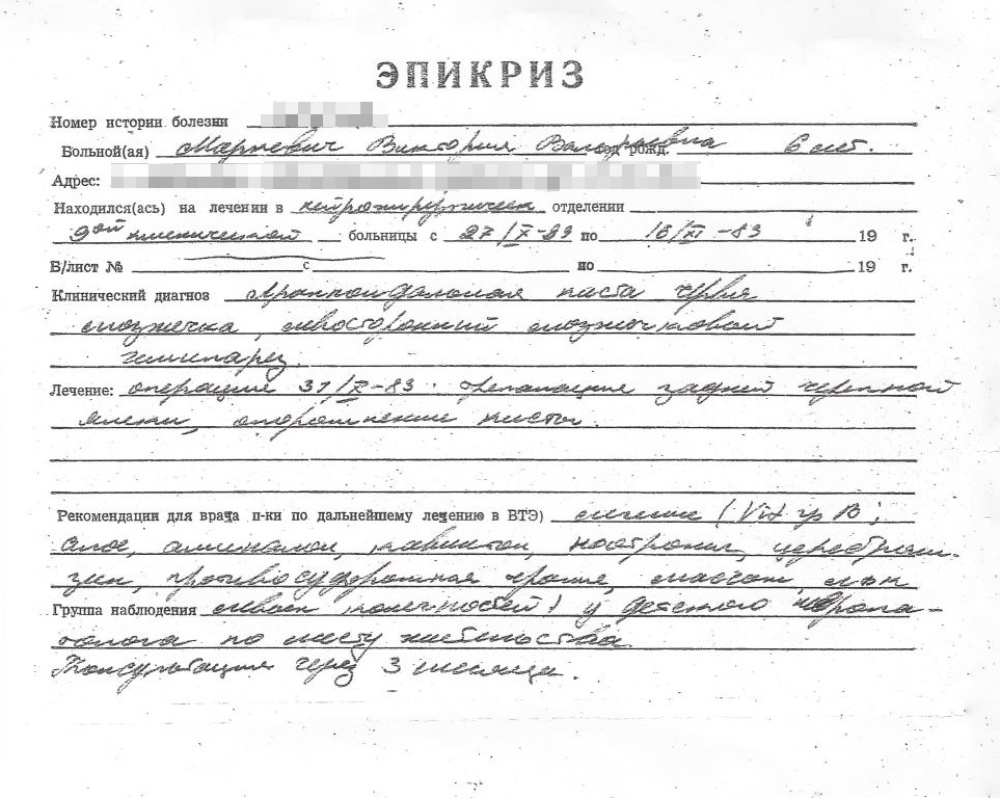 ЭПИКРИЗ
Номер истории болезни
Больной(ая) Виктория год рожд. 6 лет.
Адрес:
Находился(ась) на лечении в нейрохирургическ отделении
9ой клинической больницы с 27/X-83 по 16/XI-83 19 г.
Б/лист № с по 19 г.
Клинический диагноз Арахноидальная киста червя
мозжечка, левосторонний мозжечковый
гемипарез.
Лечение: операция 31/X-83. трепанация задней черепной
ямки, опорожнение кисты.
Рекомендации для врача п-ки по дальнейшему лечению в ВТЭ) лечение (Vit гр В,
алоэ, аминалон, кавинтон, ноотропил, церебролизин,
противосудорожная массаж
Группа наблюдения левых конечностей) у детского невропа-
толога по месту жительства.
Консультация через 3 месяца.